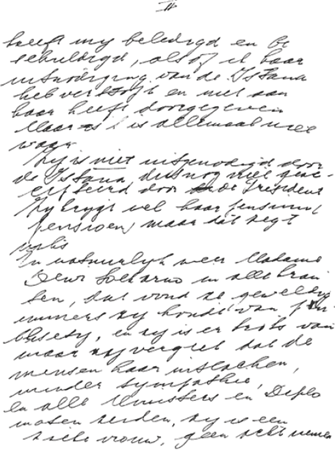 II
heeft my beledigd en be
schuldigd, alsof ik haar
uitnodiging van de Istana
heb verstopt en niet aan
haar heeft doorgegeven
Maar is allemaal niet
waar.
Zy is niet uitgenodigd door
de Istana dus nog niet
door de President
Zy krygt wel haar pensioen
(pensioen) maar dat zegt
niets
En natuurlyk weer Madame
Dewi Soekarno in alle kran
ten, dat vond ze geweldig
immers zy houdt van pu
blicity, en zy is er trots van
maar zy vergeet dat de
mensen haar uitlachen,
minder sympathie,
en alle Ministers en Diplo
maten zeiden, zy is een
vrouw, geen